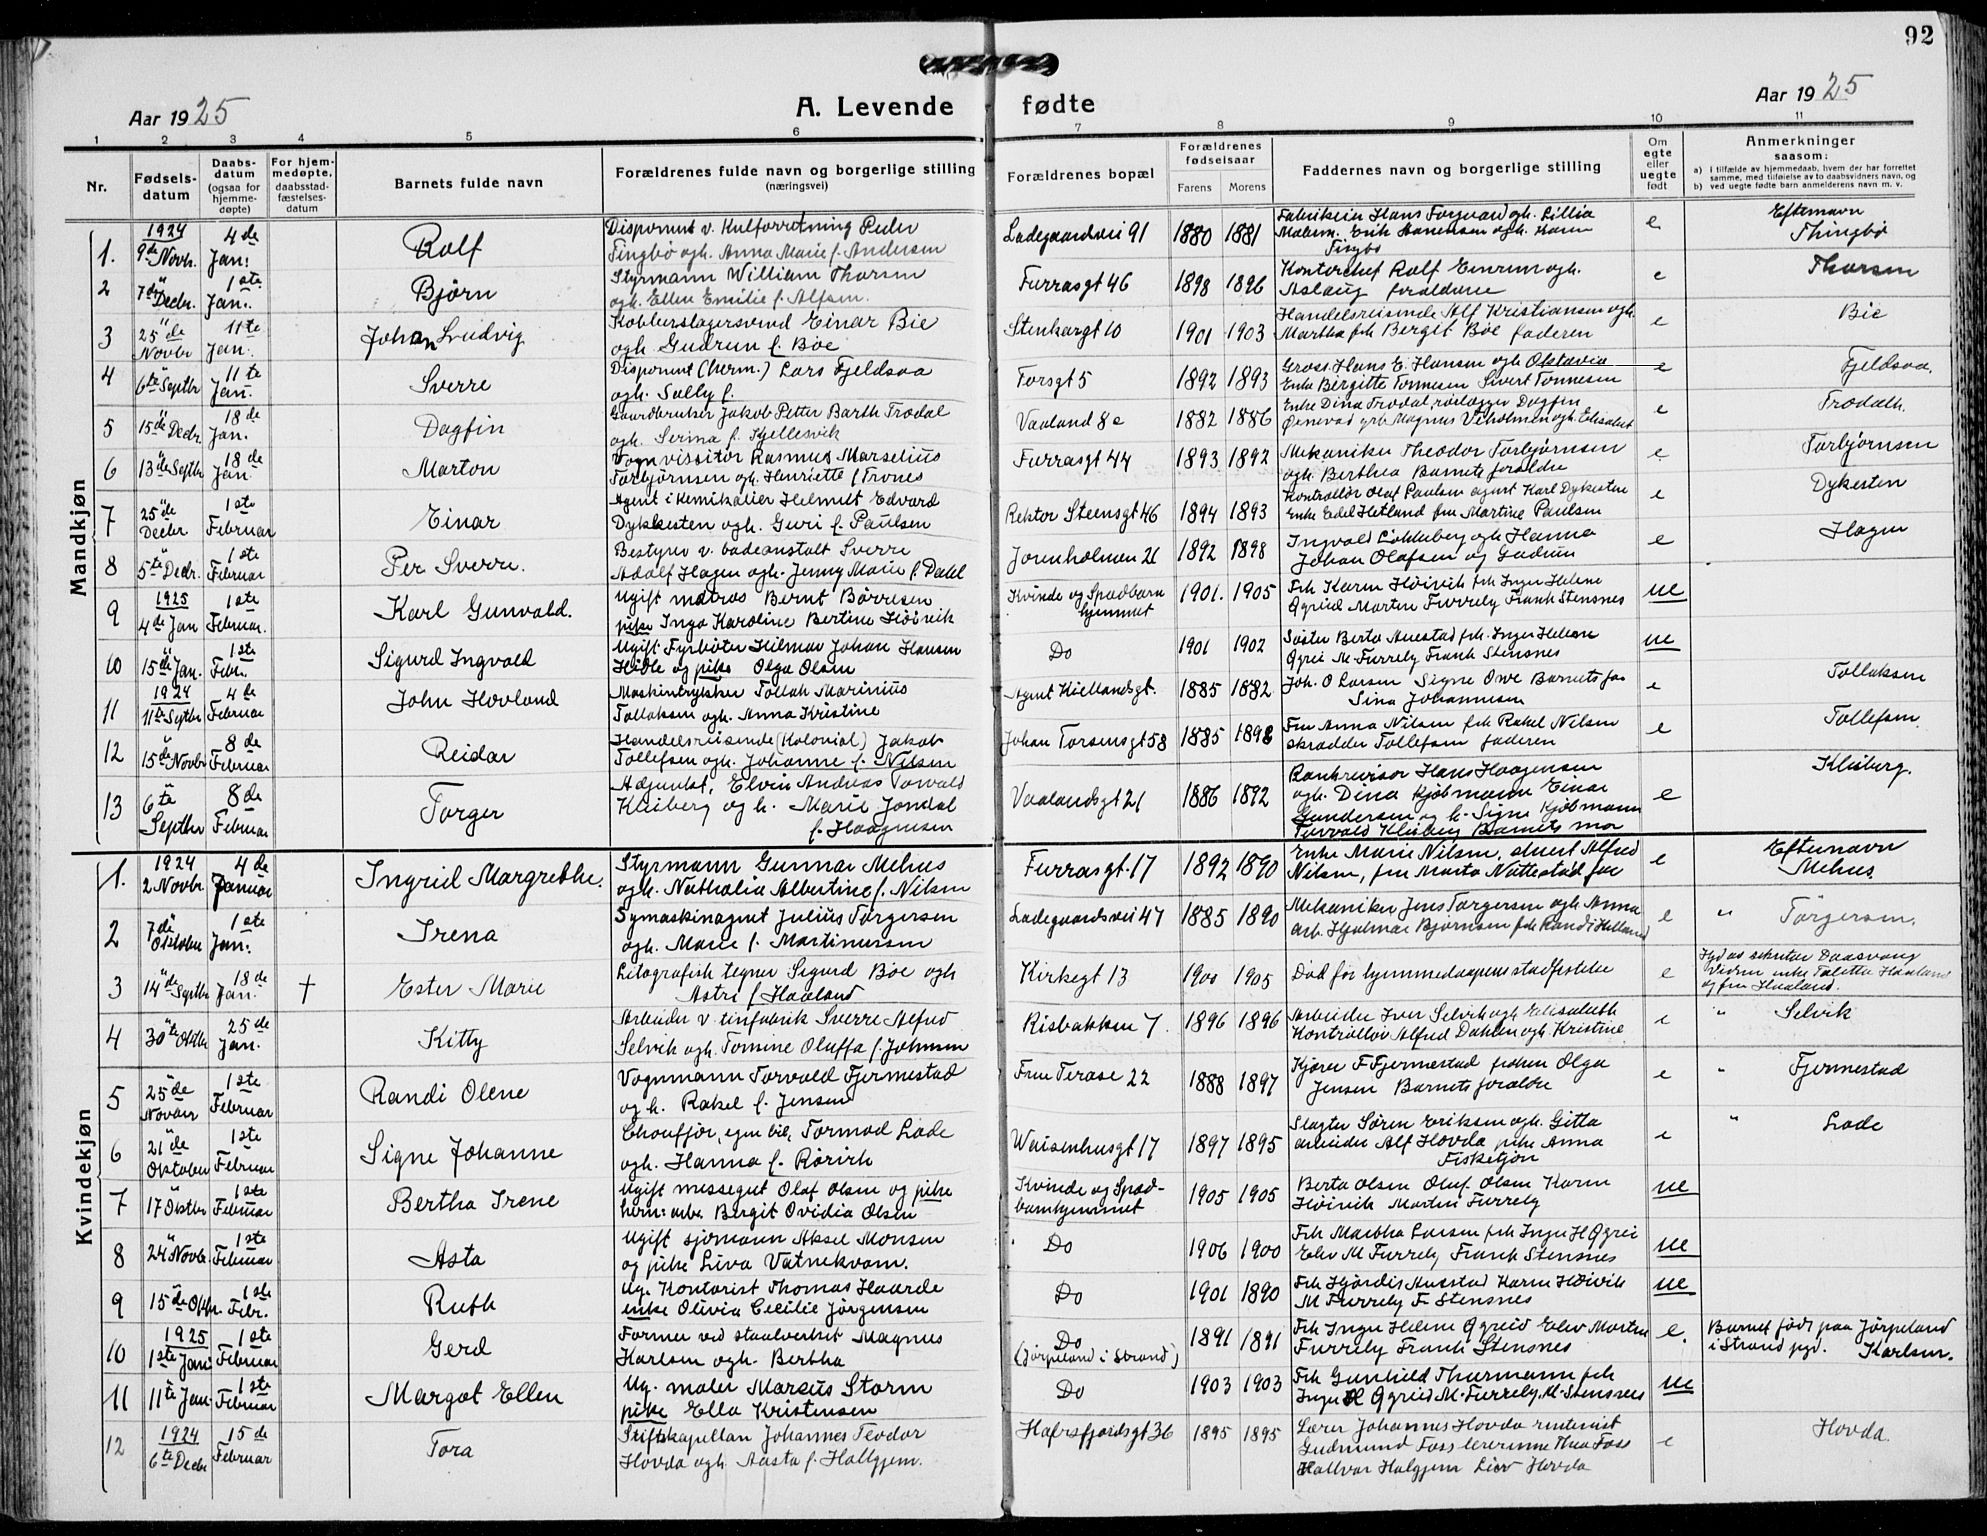 92
Aar 1925
A. Levende fødte
Aar 1925
1 2 3 4 5 6 7 8 9 10 11
Nr.
Fødsels-
datum
Daabs-
datum
(ogsaa for
hjemme-
døpte)
For hjem-
medøpte,
daabsstad-
fæstelses-
datum
Barnets fulde navn
Forældrenes fulde navn og borgerlige stilling
(næringsvei)
Forældrenes bopæl
Forældrenes
fødselsaar
Farens Morens
Faddernes navn og borgerlige stilling
Om
egte
eller
uegte
født
Anmerkninger
saasom:
a) i tilfælde av hjemmedaab, hvem der har forrettet
samme, med tilføielse av to daabsvidners navn, og
b) ved uegte fødte barn anmelderens navn m. v.
Mandkjøn
1. 1924 9de Novb. 4de Jan. Rolf
Disponent v. Kulforretning Peder
Tingbø ogh. Anna Marie f. Andersen
Ladegaardsvei 91 1880 1881
e Efternavn
Thingbø
2 7de Decbr. 1ste Jan. Bjørn
Styrmann William Thorsen
ogh. Ellen Emilie f. Alfsen.
Furrasgt 46 1898 1896
Kontorchef Rolf Einrem ogh.
Aslaug foreldrene
e Thorsen
3 25de Novbr 11te Jan. Johan Ludvig
Kobberslagersvend Einar Bie
ogh. Gudrun f. Bøe
Stenkargt 10 1901 1903
Handelsreisende Alf Kristiansen ogh.
Martha frk Bergit Bøe faderen
e Bie
4 6te Septbr 11te Jan. Sverre
Disponent (herm.) Lars Fjeldsaa
ogh. Sally f.
Torsgt 5 1892 1893
Gros. Hans E. Hansen ogh Oktavia
Enke Birgitte Tønnesen Sivert Tønnesen
e Fjeldsaa.
5 15de Decbr. 18de Jan. Dagfin
Gaardbruker Jakob Petter Barth Trodal
ogh. Serina f. Kjellesvik
Vaaland 8c 1882 1886
e Trodalh.
6 13de Septbr 18de Jan. Morton
Vognvissitør Rasmus Marselius
Torbjørnsen ogh. Henriette f Trones
Furrasgt 44 1893 1892
Mekaniker Theodor Torbjørnsen
ogh. Berthea Barnets foreldre
e Torbjørnsen
7 25de Decbr 1ste Februar Einar
Agent i Kemikalier Helmut Edvard
Dykkesten ogh. Guri f. Paulsen
Rektor Steensgt 46 1894 1893
Kontrollør Olaf Paulsen agent Karl Dykesten
Enke Edel Hetland fru Martine Paulsen
e Dykesten
8 5te Decbr. 1ste Februar Per Sverre.
Bestyrer v. badeanstalt Sverre
Adolf Hagen ogh. Jenny Marie f. Dahl
Jorenholmen 26 1892 1898
Ingvald Løkkeberg ogh Hanna
Johan Olafsen og Gudrun
e Hagen
9 1925 4de Jan 1ste Februar. Karl Gunvald.
Ugift matros Bernt Børresen
pike Inga Karoline Bertine Høivik
Kvinde og Spædbarn
hjemmet 1901. 1905
Frk Karen Høivik frk Inger Helene
Øgreid Marten Furreby Frank Stensnes
ue
10 15de Jan. 1ste Febr. Sigurd Ingvald
Ugift Fyrbøter Hilmar Johan Hansen
Hidle og pike Olga Olsen
Do 1901 1902
Søster Berta Auestad frk. Inger Helene
Øgrei M Furreby Frank Stensnes
ue
11 1924 11te Septbr 4de Februar John Hovland
Maskintrykker Tollak Marinius
Tollaksen ogh. Anna Kristine
Agent Kiellandsgt. 1885 1882
Joh. O Larsen Signe Owe Barnets far
Sina Johannesen
e Tollaksen
12 15de Novbr 8de Februar Reidar
Handelsreisende (Kolonial) Jakob
Tollefsen ogh. Johanne f. Nilsen
Johan Torsensgt 58 1885 1898
Fru Anna Nilsen frk Rakel Nilsen
skrædder Tollefsen faderen
e Tollefsen
13 6te Septbr 8de Februar Torger
Adjunkt, Elvin Andreas Torvald
Kleiberg og h. Marie Jondal
f. Haagensen
Vaalandsgt 21 1886 1892
Bankrevisor Hans Haagensen
ogh. Dina Kjøbmann Einar
Gundersen og h. Signe Kjøbmann
Torvald Kleiberg Barnets mor
e Kleiberg.
Kvindekjøn
1. 1924 2 Novbr. 4de Januar Ingrid Margrethe.
Styrmann Gunnar Mehus
ogh. Nathalia Albertine f. Nilsen
Furrasgt. 17 1892 1890
Enke Marie Nilsen, stuert Alfred
Nilsen, fru Marta Nattestad far
e Efternavn
Mehus.
2 7de Oktober 1ste Jan. Irena
Symaskinagent Julius Torgersen
ogh. Marie f. Martinussen
Ladegaardsvei 47 1885 1890
Mekaniker Jens Torgersen ogh Anna
arb. Hjalmar Bjørnsen frk Randi Helland
e " Torgersen.
3 14de Septbr 18de Jan. † Ester Marie
Litografisk tegner Sigurd Bøe ogh
Astri f Haaland
Kirkegt 13 1900 1905
Død før hjemmedaapens stadfestelse
e
og fru Haaland.
4 30te Oktbr 25de Jan. Kitty
Arbeider v. tinfabrik Sverre Alfred
Selvik ogh. Tomine Oluffa f. Johnsen
Risbakken 7. 1896 1896
Arbeider Iver Selvik ogh Elisabeth
Kontrollør Alfred Dahlen ogh Kristine
e " Selvik
5 25de Novbr 1ste Februar Randi Olene
Vognmann Torvald Fjermestad
og h. Rakel f. Jensen
Frue Terase 22 1888 1897
Kjører F Fjermestad frøken Olga
Jensen Barnets foreldre
e " Fjermestad
6 21de Oktober 1ste Februar Signe Johanne
Chouffør, egen bil, Tormod Lode
ogh. Hanna f. Rørvik
Waisenhusgt 17 1897 1895
Slagter Søren Eriksen ogh. Gitta
arbeider Alf Hovda pike Anna
Fisketjøn
e " Lode
7 17 Oktbr 1ste Februar Bertha Irene
Ugift messegut Olaf Olsen og pike
herm. arb. Bergit Ovidia Olsen
Kvinde og Spæd-
barnhjemmet 1905 1905
Berta Olsen Oluf Olsen Karen
Høivik Martin Furreby
ue
8 24de Novbr. 1ste Februar Asta
Ugift sjømann Aksel Monsen
og pike Liva Vatnekvam.
Do 1906 1900
Frk Martha Larsen frk Inger H Øgrei
Elev M Furreby Frank Stensnes
ue
9 15de Oktbr. 1ste Febr. Ruth
Ug. Kontorist Thomas Haarde
enke Olivia Cecilie Jørgensen
Do 1901 1890
Frk Hjørdis Auestad Karen Høivik
M Furreby F Stensnes
ue
10 1925 1ste Jan. 1ste Februar Gerd
Former ved staalverket Magnus
Karlsen ogh. Bertha
Do
(Jørpeland i Strand) 1891 1891
Frk Inger Helene Øgreid Elev Morten
Furreby Frank Stensnes
e. Barnet født paa Jørpeland
i Strand pgd. Karlsen.
11 11te Jan. 1ste Februar Margot Ellen
Ug. maler Marcus Storm
pike Ella Kristensen
Do 1903 1903
Frk Gunhild Thurmann frk
Inger H Øgreid M. Furreby, M. Stensnes
ue
12 1924 6te Decbr 15de Februar Tora
Stiftskapellan Johannes Teodor
Hovda ogh. Aasta f. Hallgjem.
Hafrsfjordsgt 36 1895 1895
Lærer Johannes Hovda rentenist
Gudmund Foss lærerinne Thea Foss
Hallvar Halgjem Liv Hovda
e Hovda.